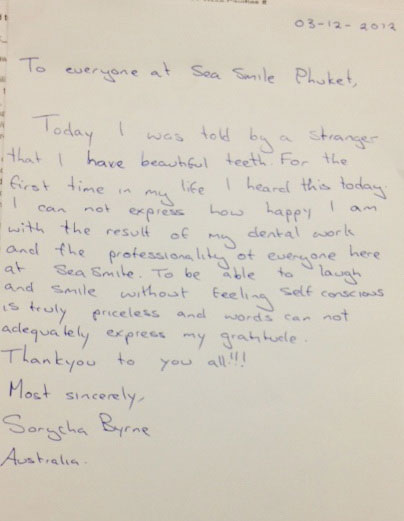 03-12-2012
To everyone at Sea Smile Phuket,
Today I was told by a stranger
that I have beautiful teeth. For the
first time in my life I heard this today.
I can not express how happy I am
with the result of my dental work
and the professionality of everyone here
at Sea Smile. To be able to laugh
and smile without feeling self conscious
is truly priceless and words can not
adequately express my gratitude.
Thankyou to you all!!!
Most sincerely,
Byrne
Australia.